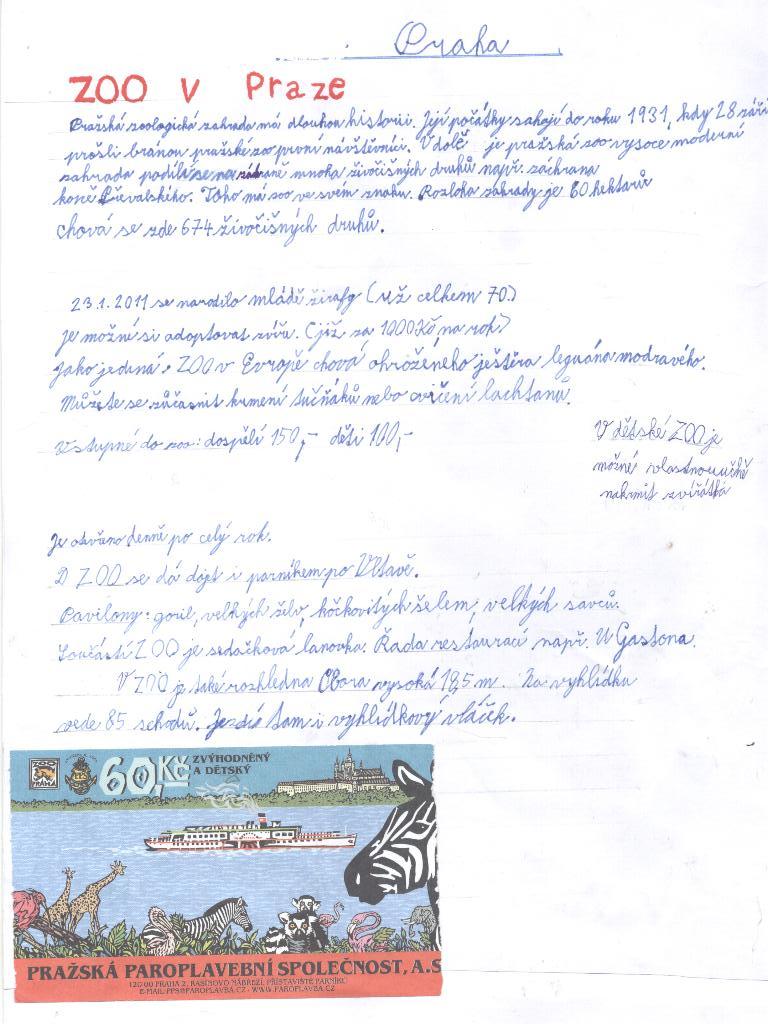 Praha
ZOO v Praze
Pražská zoologická zahrada má dlouhou historii. Její počátky sahají do roku 1931, kdy 28 září
prošli bránou pražské zoo první návštěvníci. V době je pražská zoo vysoce moderní
zahrada podílí se na záchraně mnoha živočišných druhů např. záchrana
koně Převalského. Toho má zoo ve svém znaku. Rozloha zahrady je 60 hektarů
chová se zde 674 živočišných druhů.
23.1.2011 se narodilo mládě žirafy (už celkem 70.)
je možné si adoptovat zvíře. (již za 1000Kč na rok)
Jako jediná ZOO v Evropě chová ohroženého ještěra leguána modravého.
Můžete se zůčasnit krmení tučňáků nebo cvičení lachtanů.
Vstupné do zoo: dospělí 150,- děti 100,-
V dětské ZOO je
možné vlastnoručně
nakrmit zvířátka
Je otvřeno denně po celý rok.
D ZOO se dá dojet i parníkem po Vltavě.
Pavilony: goril, velkých želv, kočkovitých šelem, velkých savců.
Součástí ZOO je sedačková lanovka. Řada restaurací např. U Gastona.
V ZOO je také rozhledna Obora vysoká 18,5 m. Na vyhlídku
vede 85 schodů. Jezdí tam i vyhlídkový vláček.
60,Kč ZVÝHODNĚNÝ
A DĚTSKÝ
PRAŽSKÁ PAROPLAVEBNÍ SPOLEČNOST, A.S
120 00 PRAHA 2, RAŠÍNOVO NÁBŘEŽÍ, PŘÍSTAVIŠTĚ PARNÍKŮ
E-MAIL: PPS@PAROPLAVBA.CZ - WWW.PAROPLAVBA.CZ